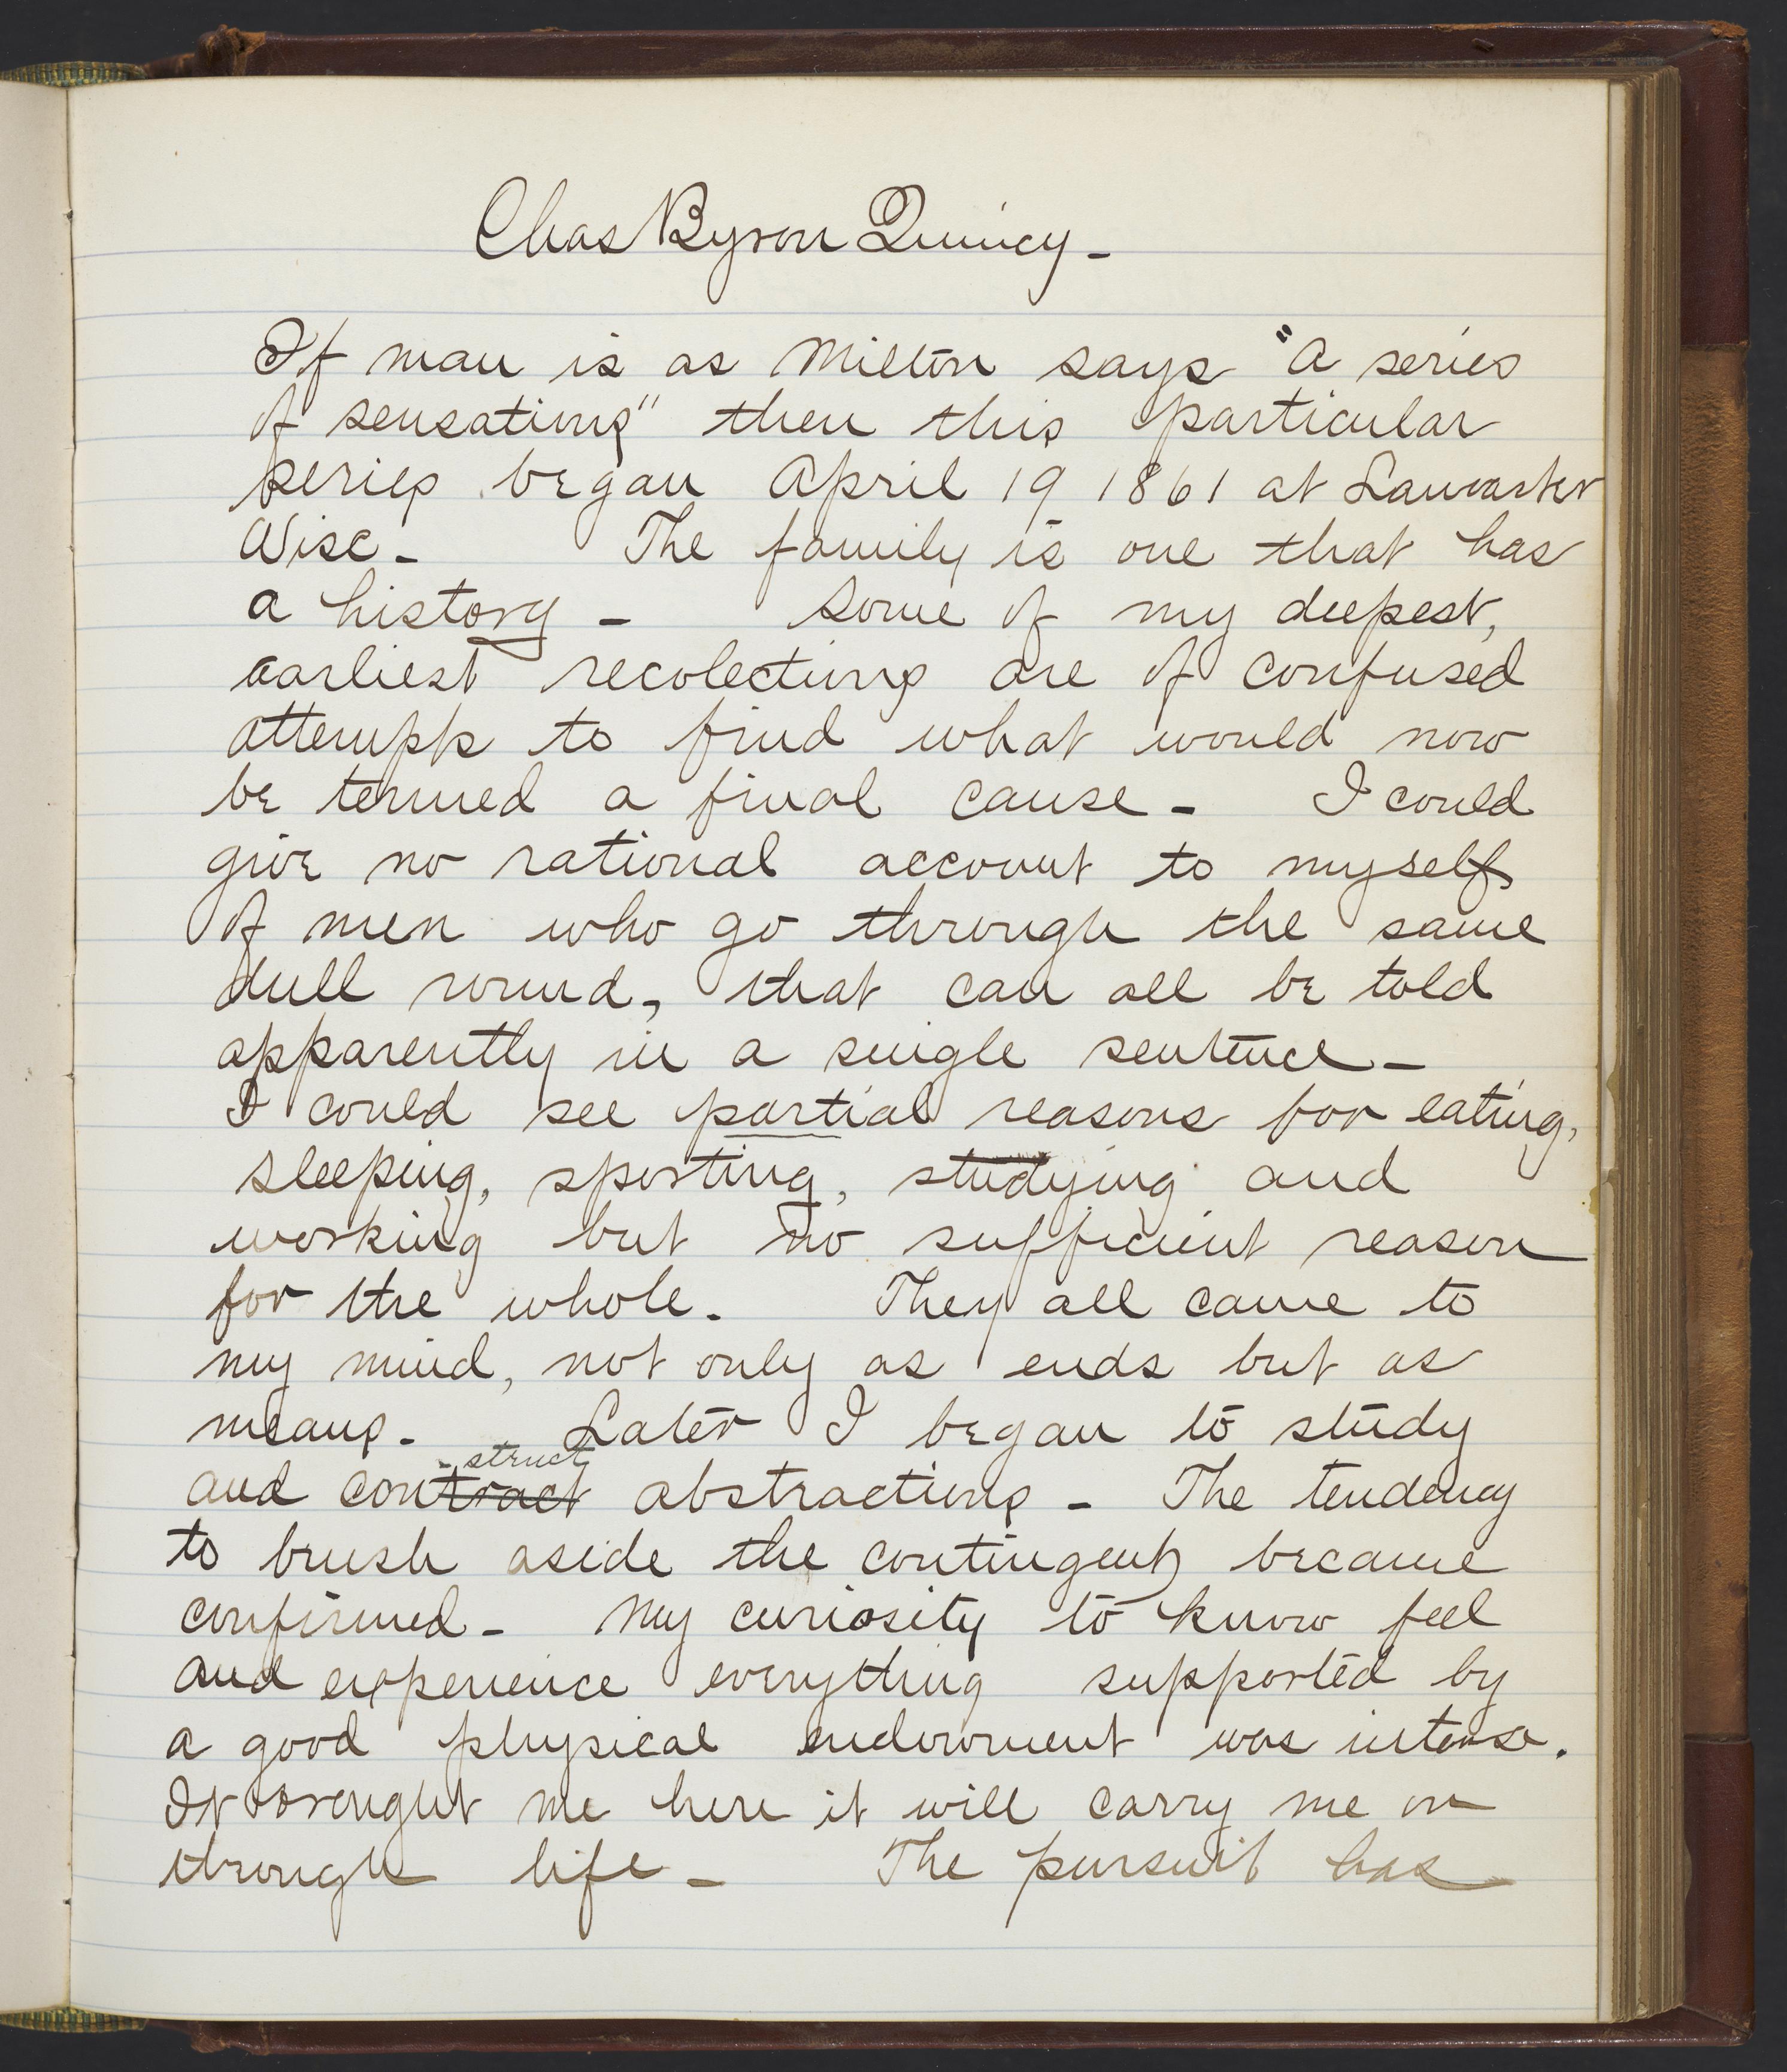 Chas Byron Quincy -
If man is as Milton says "A series
of sensations" then this particular
series began April 19 1861 at Lancaster
Wisc - The family is one that has
a history - Some of my deepest,
earliest recolections are of confused
attempts to find what would now
be termed a final cause - I could
give no rational account to myself
of men who go through the same
dull round, that can all be told
apparently in a single sentence -
I could see partial reasons for eating,
sleeping, sporting, studying and
working but no sufficient reason
for the whole. They all came to
my mind, not only as ends but as
means - Later I began to study
- struct
and contract abstractions - The tendency
to brush aside the contingent became
confirmed - My curiosity to know feel
and experience everything supported by
a good physical endowment was intense.
It brought me here it will carry me on
through life - The pursuit has